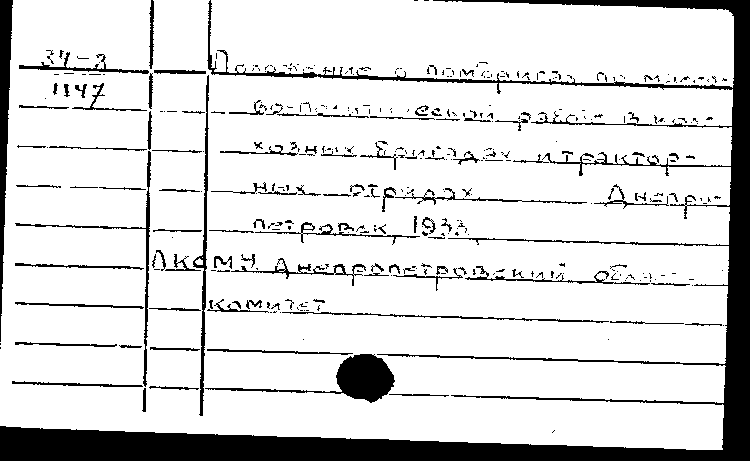 34-3
1147
Положение о помбригах по массо-
во-политической работе в кол-
хозных бригадах и трактор-
ных отрядах. Днепро-
петровск, 1933.
ЛКСМУ. Днепропетровский област.
комитет